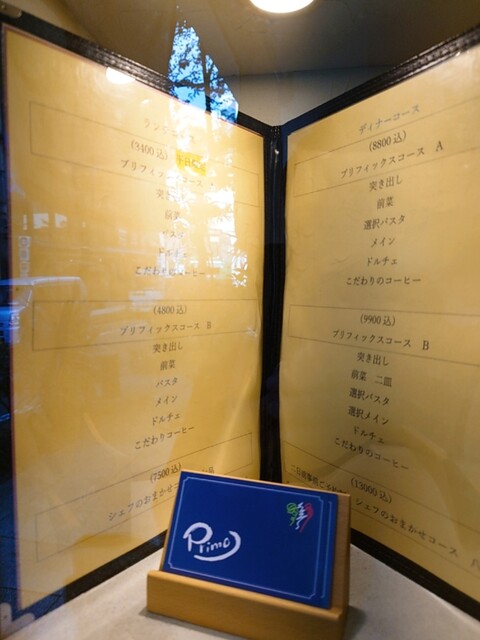 ランチコース
(3400込)
プリフィックスコース
突き出し
前菜
パスタ
ドルチェ
こだわりのコーヒー
(4800込)
プリフィックスコース B
突き出し
前菜
パスタ
メイン
ドルチェ
こだわりコーヒー
(7500込)
シェフのおまかせコース
ディナーコース
(8800込)
プリフィックスコース A
突き出し
前菜
選択パスタ
メイン
ドルチェ
こだわりのコーヒー
(9900込)
プリフィックスコース B
突き出し
前菜 二皿
選択パスタ
選択メイン
ドルチェ
こだわりのコーヒー
(13000込)
シェフのおまかせコース
Primo